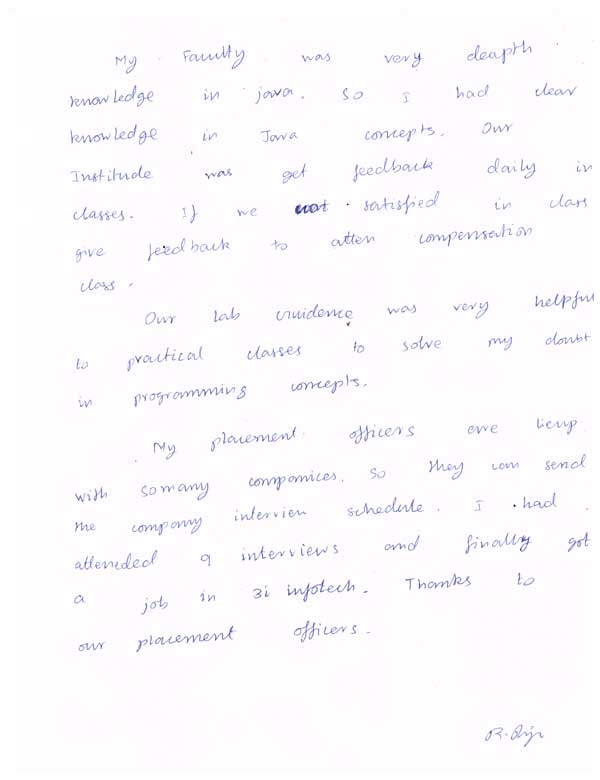 My Faculty was very deapth
knowledge in java. So I had clear
knowledge in Java concepts. Our
Institude was get feedback daily in
classes. If we not satisfied in class
give feedback to atten compensation
class.
Our Lab Gruidence was very helpful
to practical classes to solve my doubt
in programming concepts.
My placement officers are tieup
with somany companices. So they can send
the company interview schedule. I had
atteneded 9 interviews and finally got
a job in 3i infotech. Thanks to
our placement officers.